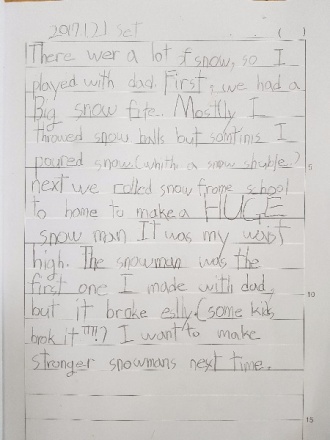 2017 12 1 Sat ( )
There wer a lot of snow, so I
played with dad. First, we had a
Big snow fite. Mostly I
throwed snow balls but somtinis I
poured snow (whith a snow shuble)
next we rolled snow frome school
to home to make a HUGE
snow man It was my waist
high. The snowman was the
first one I made with dad,
but it broke esily. (some kids
brok it "!!!!?) I want to make
stronger snowmans next time.
5
10
15